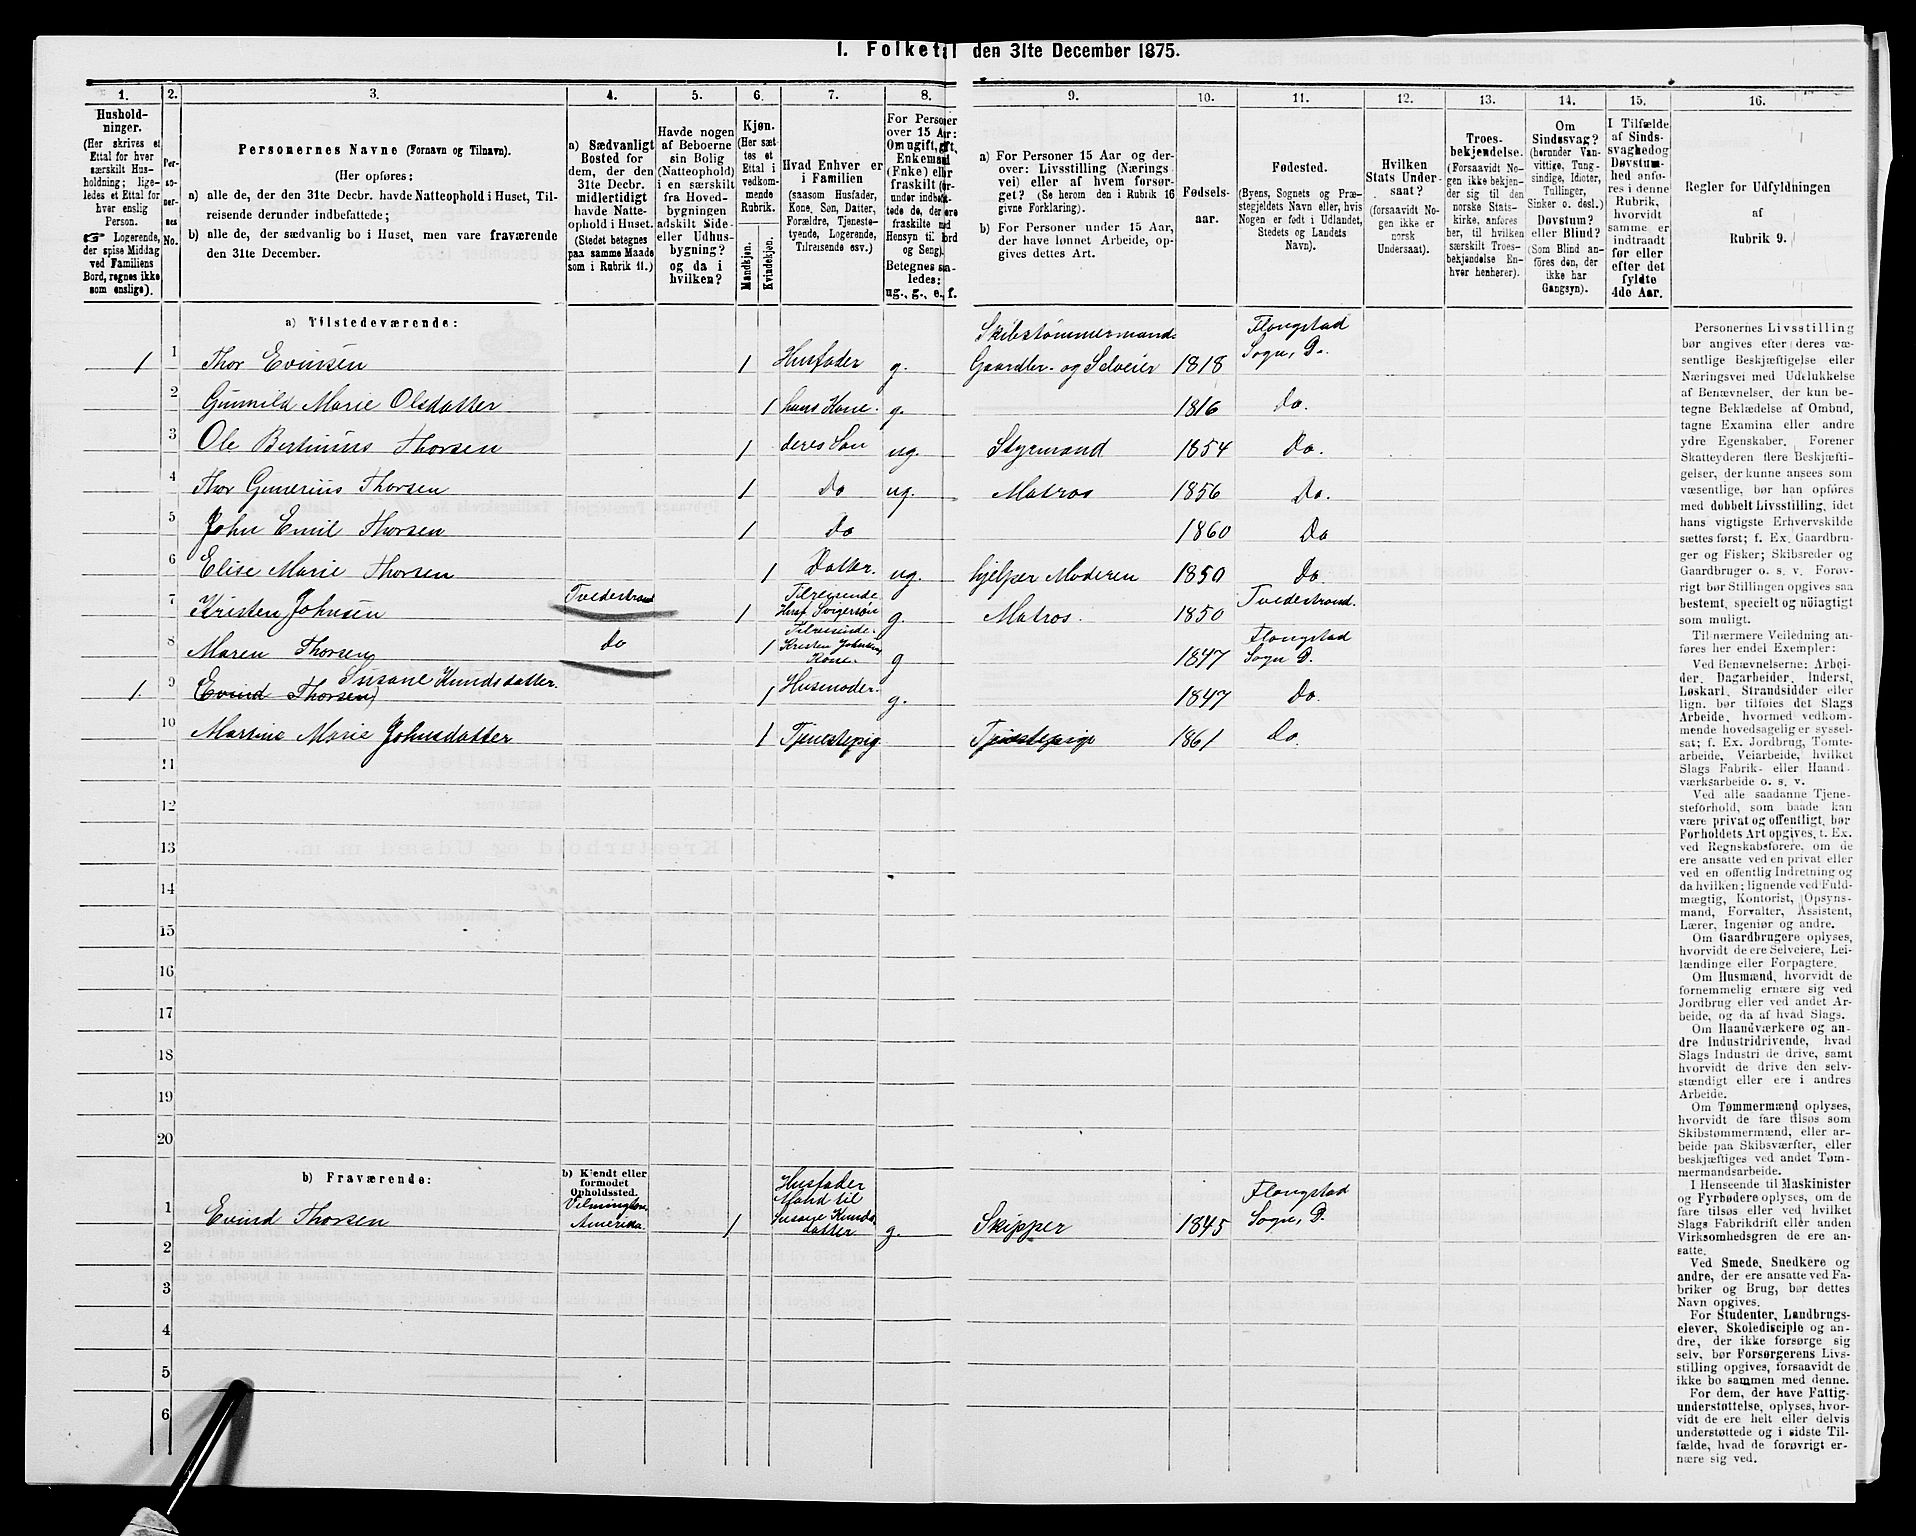 1. Folketal den 31te December 1875.
1. 2. 3. 4. 5. 6. 7. 8. 9. 10. 11. 12. 13. 14. 15. 16.
Hushold-
ninger.
(Her skrives et
Ettal for hver
særskilt Hus-
holdning; lige-
ledes et Ettal for
hver enslig
Person.
☞ Logerende,
der spise Middag
ved Familiens
Bord, regnes ikke
som enslige).
Per-
so-
ner-
nes
No.
Personernes Navne (Fornavn og Tilnavn).
(Her opføres:
a) alle de, der den 31te Decbr. havde Natteophold i Huset, Til-
reisende derunder indbefattede;
b) alle de, der sædvanlig bo i Huset, men vare fraværende
den 31te December.
a) Sædvanligt
Bosted for
dem, der den
31te Decbr.
midlertidigt
havde Natte-
ophold i Huset.
(Stedet betegnes
paa samme Maade
som i Rubrik 11.)
Havde nogen
af Beboerne
sin Bolig
(Natteophold)
i en særskilt
fra Hoved-
bygningen
adskilt Side-
eller Udhus-
bygning?
og da i
hvilken?
Kjøn.
(Her sæt-
tes et
Ettal i
vedkom-
mende
Rubrik.
Mandkjøn.
Kvindekjøn.
Hvad Enhver er
i Familien
(saasom Husfader,
Kone, Søn, Datter,
Forældre, Tjeneste-
tyende, Logerende,
Tilreisende osv.)
For Personer
over 15 Aar:
Om ugift, gift,
Enkemand
(Enke) eller
fraskilt
Betegnes saa-
ledes:
ug., g., e., f.
a) For Personer 15 Aar og der-
over: Livsstilling (Nærings-
vei) eller af hvem forsør-
get? (Se herom den i Rubrik 16
givne Forklaring).
b) For Personer under 15 Aar,
der have lønnet Arbeide, op-
gives dettes Art.
Fødsels-
aar.
Fødested.
(Byens, Sognets og Præ-
stegjeldets Navn eller, hvis
Nogen er født i Udlandet,
Stedets og Landets
Navn).
Hvilken
Stats Under-
saat?
(forsaavidt No-
gen ikke er
norsk
Undersaat).
Troes-
bekjendelse.
(Forsaavidt No-
gen ikke bekjen-
der sig til den
norske Stats-
kirke, anføres
her, til hvilken
særskilt Troes-
bekjendelse En-
hver henhører).
Om
Sindssvag?
(herunder Van-
vittige, Tung-
sindige, Idioter,
Tullinger,
Sinker o. desl.)
Døvstum?
eller Blind?
(Som Blind an-
føres den, der
ikke har
Gangsyn).
I Tilfælde
af Sinds-
svaghed og
Døvstum-
hed anfø-
res i denne
Rubrik,
hvorvidt
samme er
indtraadt
før eller
efter det
fyldte
4de Aar.
Regler for Udfyldningen
af
Rubrik 9.
a) Tilstedeværende:
1 1 Thor Evinsen 1 Husfader g. Skibstømmermand Gaardbr. og Selveier 1818 Flangstad Sogn, D.
2 Gunnild Marie Olsdatter 1 hans Kone. g. 1816 Do.
3 Ole Bertinius Thorsen 1 deres Søn ug. Styrmand 1854 Do.
4 Thor Gunerius Thorsen 1 Do ug. Matros 1856 Do.
5 John Emil Thorsen 1 Do 1860 Do
6 Elise Marie Thorsen 1 Datter. ug. hjelper Moderen 1850 Do
7 Kristen Johnsen Tvedestrand 1 Tilreisende g. Matros. 1850 Tvedestrand.
8 Maren Thorsen Do 1 Tilreisende. Kristen Johnsen Kone. g 1847 Flangstad Sogn D.
Susane Knudsdatter.
1. 9 (Evind Thorsen) 1 Husmoder. g. 1847 Do.
10 Martine Marie Johnsdatter 1 Tjenestepig Tjenestepige 1861 Do.
11
12
13
14
15
16
17
18
19
20
b) Fraværende:
b) Kjendt eller
formodet
Opholdssted.
1 Evind Thorsen Vilmington Amerika. 1 Husfader Mand til Susane Knudsdatter g. Skipper 1845 Flangstad Sogn, D.
2
3
4
5
6
Personernes Livsstilling
bør angives efter deres væ-
sentlige Beskjæftigelse eller
Næringsvei med Udelukkelse
af Benævnelser, der kun be-
tegne Beklædelse af Ombud,
tagne Examina eller andre
ydre Egenskaber. Forener
Skatteyderen flere Beskjæfti-
gelser, der kunne ansees som
væsentlige, bør han opføres
med dobbelt Livsstilling, idet
hans vigtigste Erhvervskilde
sættes først; f. Ex. Gaardbru-
ger og Fisker; Skibsreder og
Gaardbruger o. s. v. Forøv-
rigt bør Stillingen opgives saa
bestemt, specielt og nøiagtigt
som muligt.
Til nærmere Veiledning an-
føres her endel Exempler:
Ved Benævnelserne: Arbei-
der, Dagarbeider, Inderst,
Løskarl, Strandsidder eller
lign. bør tilføies det Slags
Arbeide, hvormed vedkom-
mende hovedsagelig er syssel-
sat; f. Ex. Jordbrug, Tomte-
arbeide, Veiarbeide, hvilket
Slags Fabrik- eller Haand-
værksarbeide o. s. v.
Ved alle saadanne Tjene-
steforhold, som baade kan
være privat og offentligt, bør
Forholdets Art opgives, t. Ex.
ved Regnskabsførere, om de
ere ansatte ved en privat eller
ved en offentlig Indretning og
da hvilken; lignende ved Fuld-
mægtig, Kontorist, Opsyns-
mand, Forvalter, Assistent,
Lærer, Ingeniør og andre.
Om Gaardbrugere oplyses,
hvorvidt de ere Selveiere, Lei-
lændinge eller Forpagtere.
Om Husmænd, hvorvidt de
fornemmelig ernære sig ved
Jordbrug eller ved andet Ar-
beide, og da af hvad Slags.
Om Haandværkere og an-
dre Industridrivende, hvad
Slags Industri de drive, samt
hvorvidt de drive den selv-
stændigt eller ere i andres
Arbeide.
Om Tømmermænd oplyses,
hvorvidt de fare tilsøs som
Skibstømmermænd, eller ar-
beide paa Skibsværfter, eller
beskjæftiges ved andet Tøm-
mermandsarbeide.
I Henseende til Maskinister
og Fyrbødere oplyses, om de
fare tilsøs eller ved hvilket
Slags Fabrikdrift eller anden
Virksomhedsgren de ere an-
satte.
Ved Smede, Snedkere og
andre, der ere ansatte ved Fa-
briker og Brug, bør dettes
Navn opgives.
For Studenter, Landbrugs-
elever, Skoledisciple og an-
dre, der ikke forsørge sig
selv, bør Forsørgerens Livs-
stilling opgives, forsaavidt de
ikke bo sammen med denne.
For dem, der have Fattig-
understøttelse, oplyses, hvor-
vidt de ere helt eller delvis
understøttede og i sidste Til-
fælde, hvad de forøvrigt er-
nære sig ved.